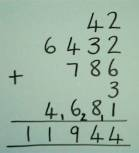 42
6432
+ 786
3
4₁6₂8₁1
11944